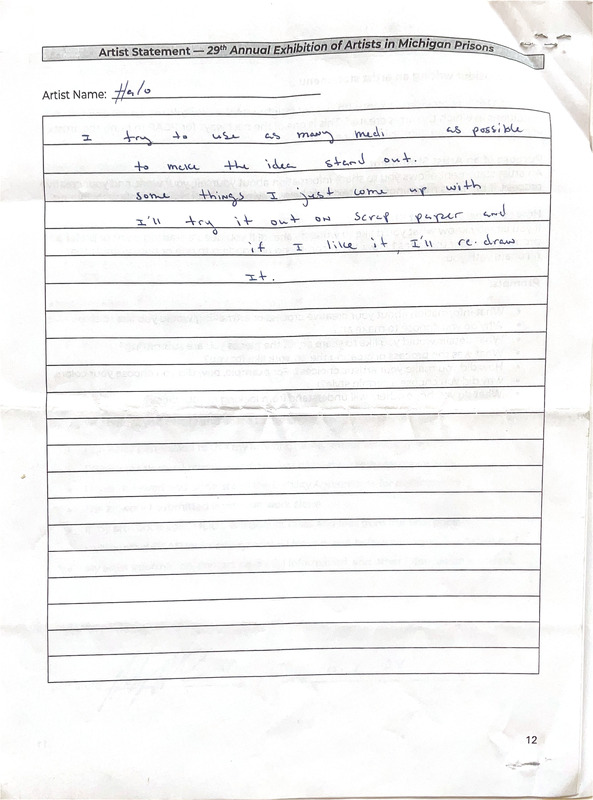 Artist Statement — 29th Annual Exhibition of Artists in Michigan Prisons
Artist Name: Halo
I try to use as many medi as possible
to make the idea stand out.
some things I just come up with
I'll try it out on scrap paper and
if I like it, I'll re-draw
It.
12